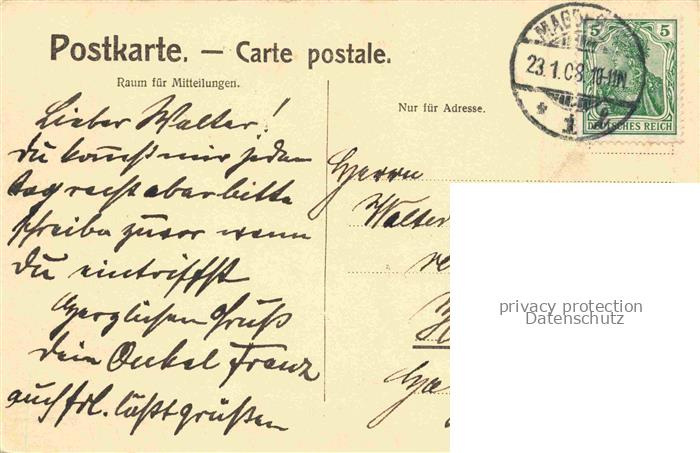 Postkarte. — Carte postale.
Raum für Mitteilungen.
Nur für Adresse.
MAGDE
23.1.08.10-11N
* 1 e
5 5
DEUTSCHES REICH
Lieber Walter!
Du kommst mir jeden
tag recht aber bitte
schreibe zuvor wenn
Du eintriffst
Herzlichen Gruß
dein Onkel Franz
auch frl. läßt grüßen
Herrn
Walter
privacy protection
Datenschutz